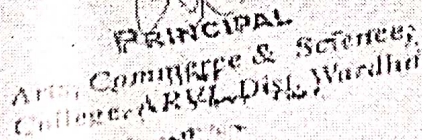 PRINCIPAL
Arts, Commerce & Science,
College, ARVI, Dist. Wardha